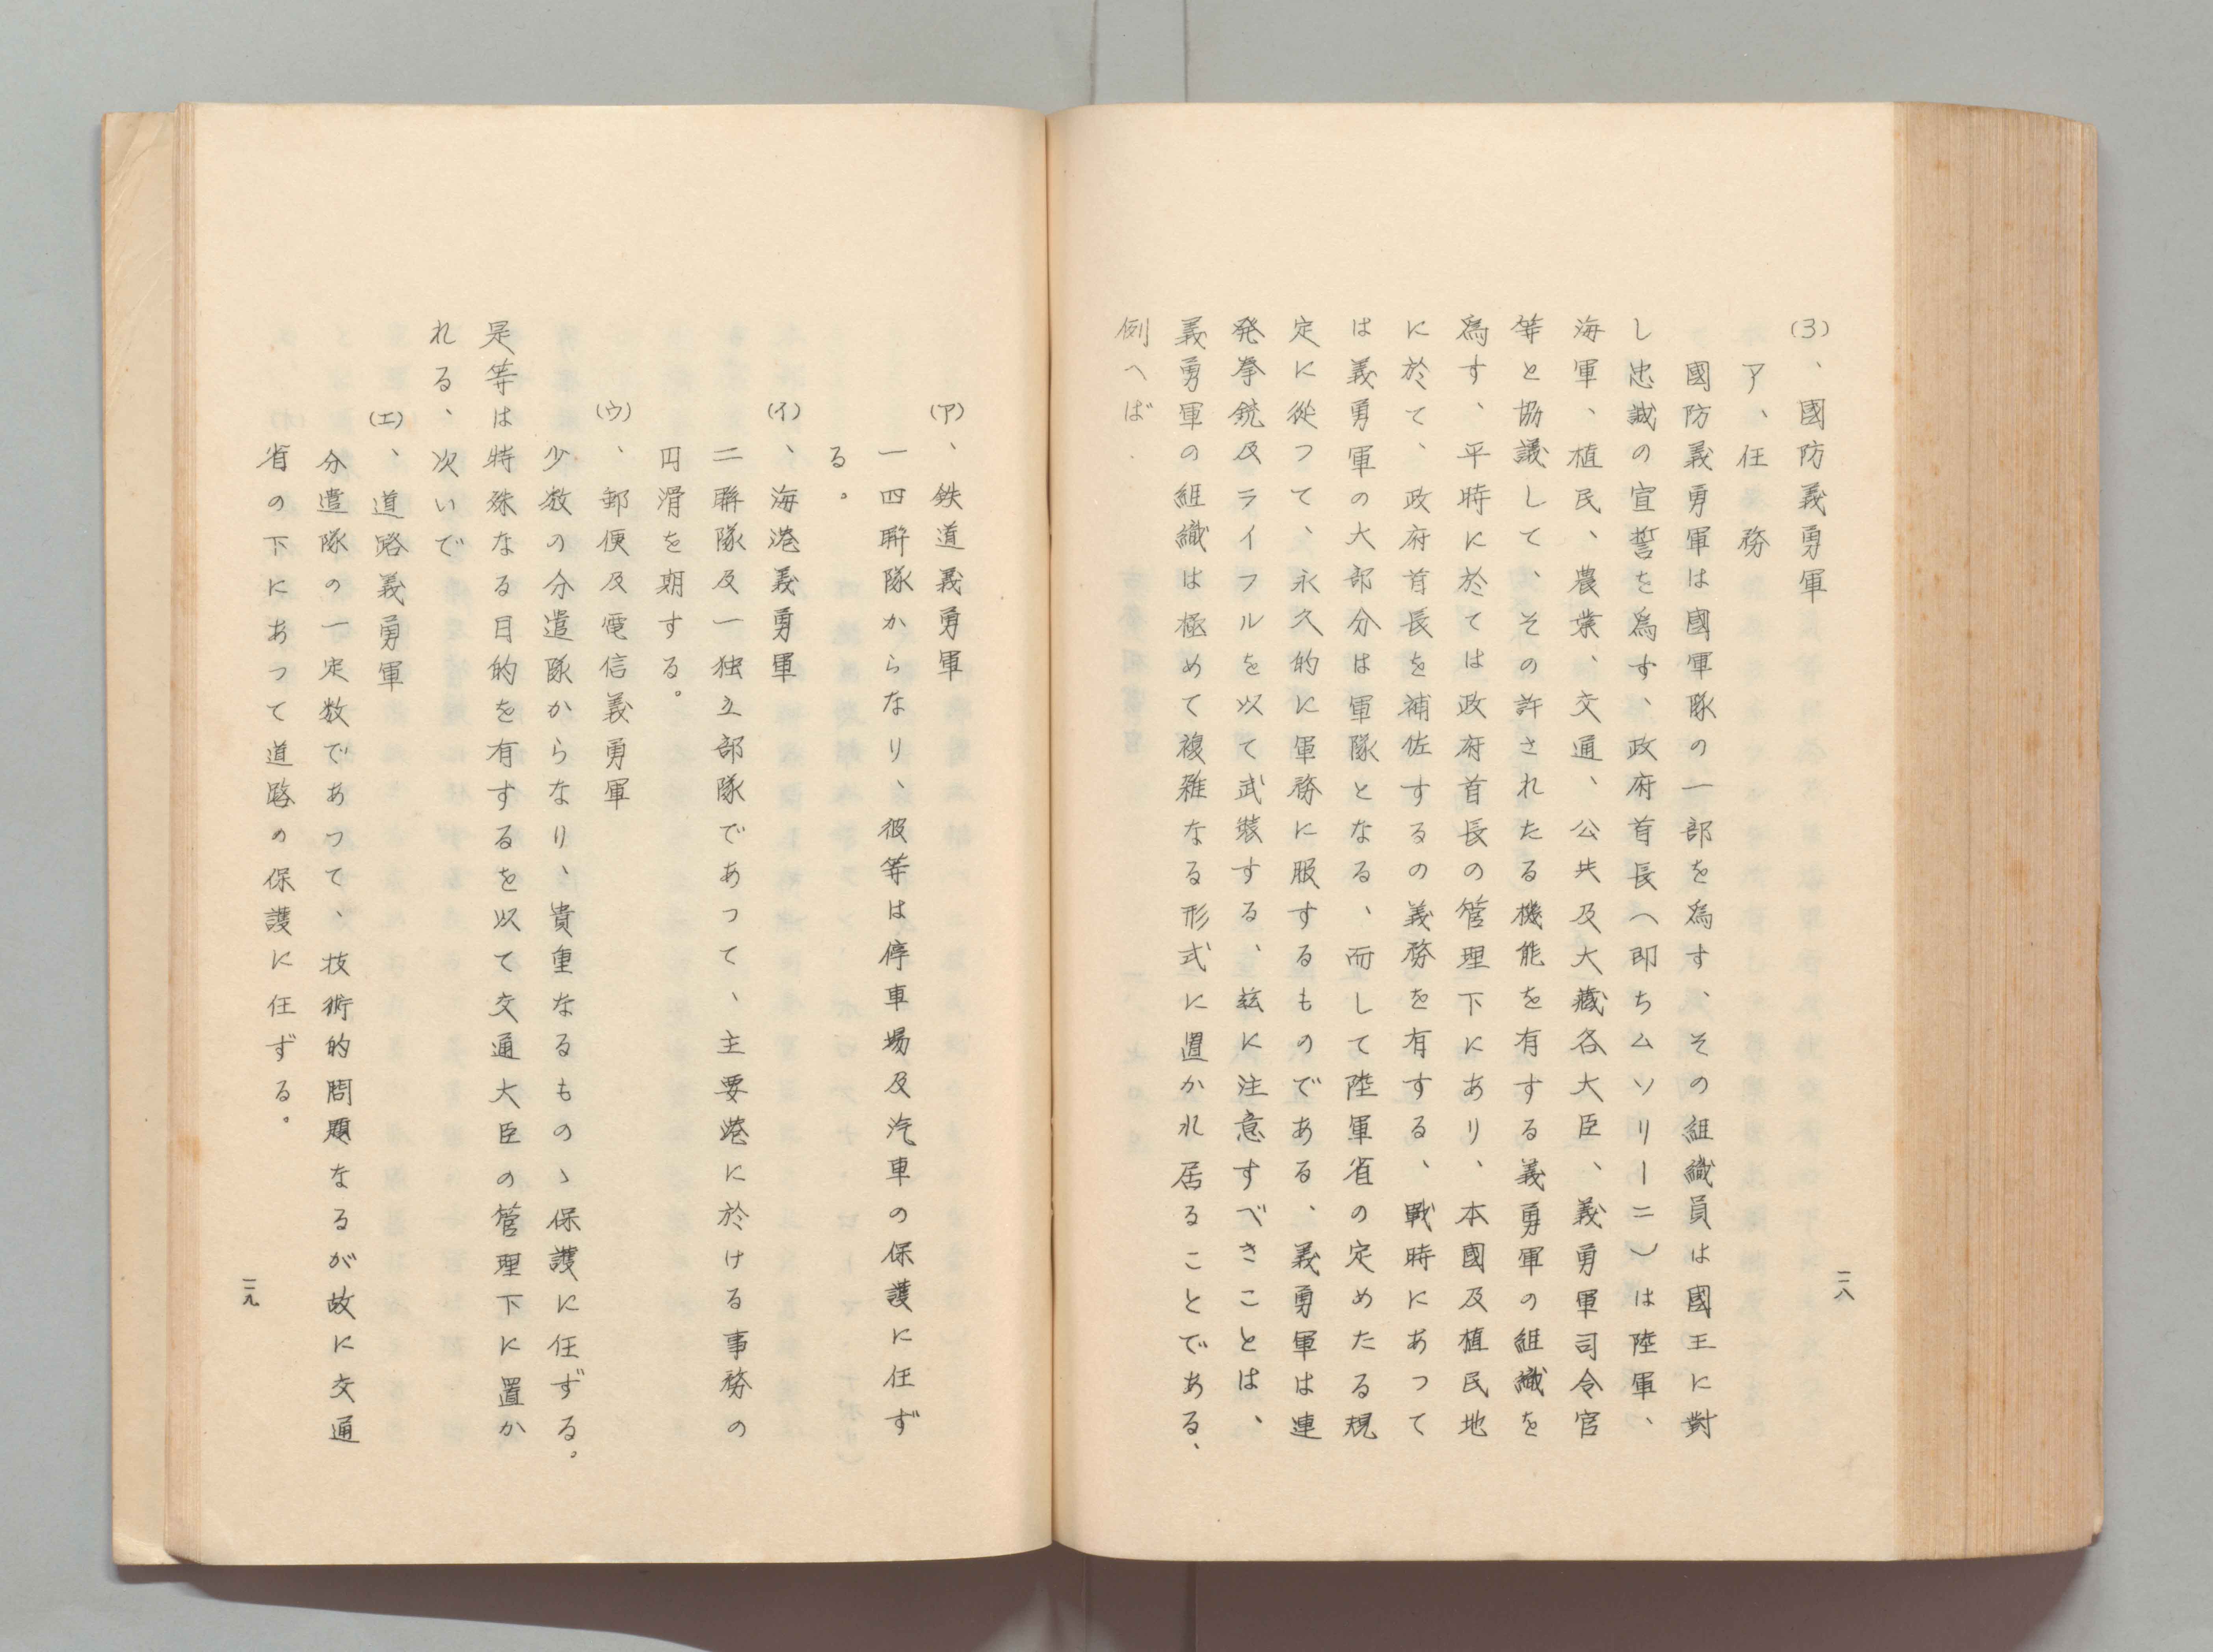 (3)、國防義勇軍
ア、任務
國防義勇軍は國軍隊の一部を爲す、その組織員は國王に對
し忠誠の宣誓を爲す、政府首長(即ちムソリーニ)は陸軍、
海軍、植民、農業、交通、公共及大藏各大臣、義勇軍司令官
等と協議して、その許されたる機能を有する義勇軍の組織を
爲す、平時に於ては政府首長の管理下にあり、本國及植民地
に於て、政府首長を補佐するの義務を有する、戰時にあって
は義勇軍の大部分は軍隊となる、而して陸軍省の定めたる規
定に從つて、永久的に軍務に服するものである、義勇軍は連
発拳銃及ライフルを以て武裝する、玆に注意すべきことは、
義勇軍の組織は極めて複雜なる形式に置かれ居ることである、
例へば.
二八
(ア)、鉄道義勇軍
一四聯隊からなり、彼等は停車場及汽車の保護に任ず
る。
(イ)、海港義勇軍
二聯隊及一独立部隊であつて、主要港に於ける事務の
円滑を期する。
(ウ)、郵便及電信義勇軍
少数の分遣隊からなり、貴重なるものゝ保護に任ずる。
是等は特殊なる目的を有するを以て交通大臣の管理下に置か
れる、次いで
(エ)、道路義勇軍
分遣隊の一定数であつて、技術的問題なるが故に交通
省の下にあつて道路の保護に任ずる。
二九